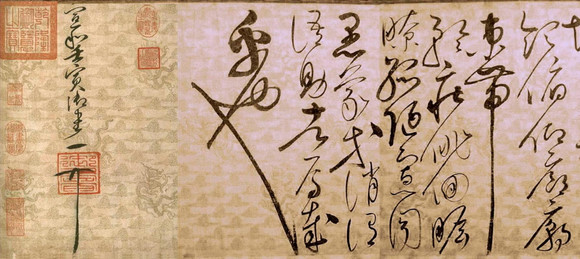 領俯仰廊廟
束帶
矜莊徘徊瞻
眺孤陋寡聞
愚蒙等誚謂
語助者焉哉
乎也
宣和壬寅御書